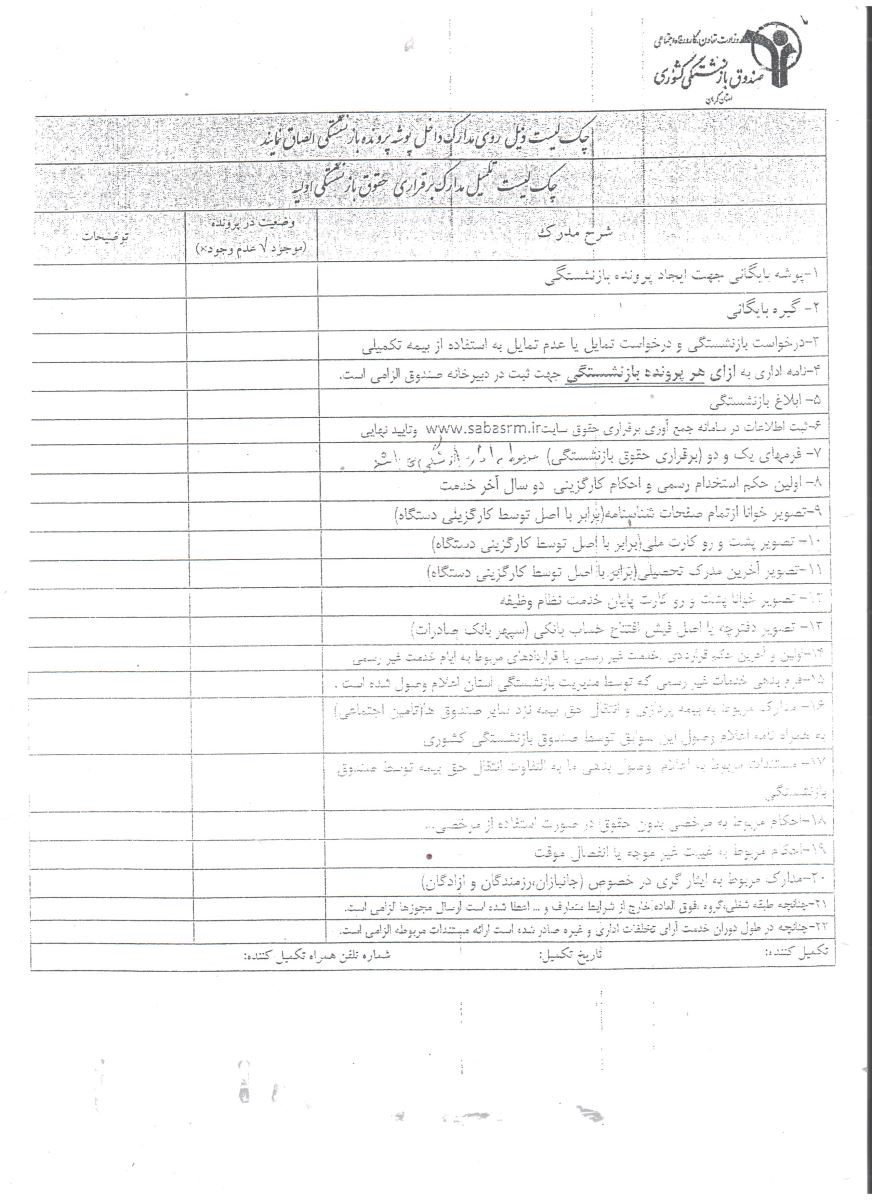 وزارت تعاون، کار و رفاه اجتماعی
صندوق بازنشستگی کشوری
استان کرمان
چک لیست ذیل روی مدارک داخل پوشه پرونده بازنشستگی الصاق نمایند
چک لیست تکمیل مدارک برقراری حقوق بازنشستگی اولیه
شرح مدرک
وضعیت در پرونده
(موجود √ عدم وجود×)
توضیحات
۱-پوشه بایگانی جهت ایجاد پرونده بازنشستگی
۲- گیره بایگانی
۳-درخواست بازنشستگی و درخواست تمایل یا عدم تمایل به استفاده از بیمه تکمیلی
۴-نامه اداری به ازای هر پرونده بازنشستگی جهت ثبت در دبیرخانه صندوق الزامی است.
۵- ابلاغ بازنشستگی
۶-ثبت اطلاعات در سامانه جمع آوری برقراری حقوق سایت www.sabasrm.ir وتایید نهایی
۷- فرمهای یک و دو (برقراری حقوق بازنشستگی) مربوط به
۸- اولین حکم استخدام رسمی و احکام کارگزینی دو سال آخر خدمت
۹-تصویر خوانا ازتمام صفحات شناسنامه(برابر با اصل توسط کارگزینی دستگاه)
۱۰- تصویر پشت و رو کارت ملی(برابر با اصل توسط کارگزینی دستگاه)
۱۱-تصویر آخرین مدرک تحصیلی(برابر با اصل توسط کارگزینی دستگاه)
۱۲- تصویر خوانا پشت و رو کارت پایان خدمت نظام وظیفه
۱۳- تصویر دفترچه یا اصل فیش افتتاح حساب بانکی (سپهر بانک صادرات)
۱۴-اولین و آخرین حکم قراردادی ،خدمت غیر رسمی یا قراردادهای مربوط به ایام خدمت غیر رسمی
۱۵-فرم بدهی خدمات غیر رسمی که توسط مدیریت بازنشستگی استان اعلام وصول شده است .
۱۶- مدارک مربوط به بیمه پردازی و انتقال حق بیمه نزد سایر صندوق ها(تامین اجتماعی)
به همراه نامه اعلام وصول این سوابق توسط صندوق بازنشستگی کشوری
۱۷- مستندات مربوط به اعلام وصول بدهی ما به التفاوت انتقال حق بیمه توسط صندوق
بازنشستگی
۱۸-احکام مربوط به مرخصی بدون حقوق در صورت استفاده از مرخصی...
۱۹-احکام مربوط به غیبت غیر موجه یا انفصال موقت
۲۰-مدارک مربوط به ایثار گری در خصوص (جانبازان،رزمندگان و ازادگان)
۲۱-چنانچه طبقه شغلی،گروه ،فوق العاده خارج از شرایط متعارف و ... اعطا شده است ارسال مجوزها الزامی است.
۲۲-چنانچه در طول دوران خدمت آرای تخلفات اداری و غیره صادر شده است ارائه مستندات مربوطه الزامی است.
تکمیل کننده:
تاریخ تکمیل:
شماره تلفن همراه تکمیل کننده: